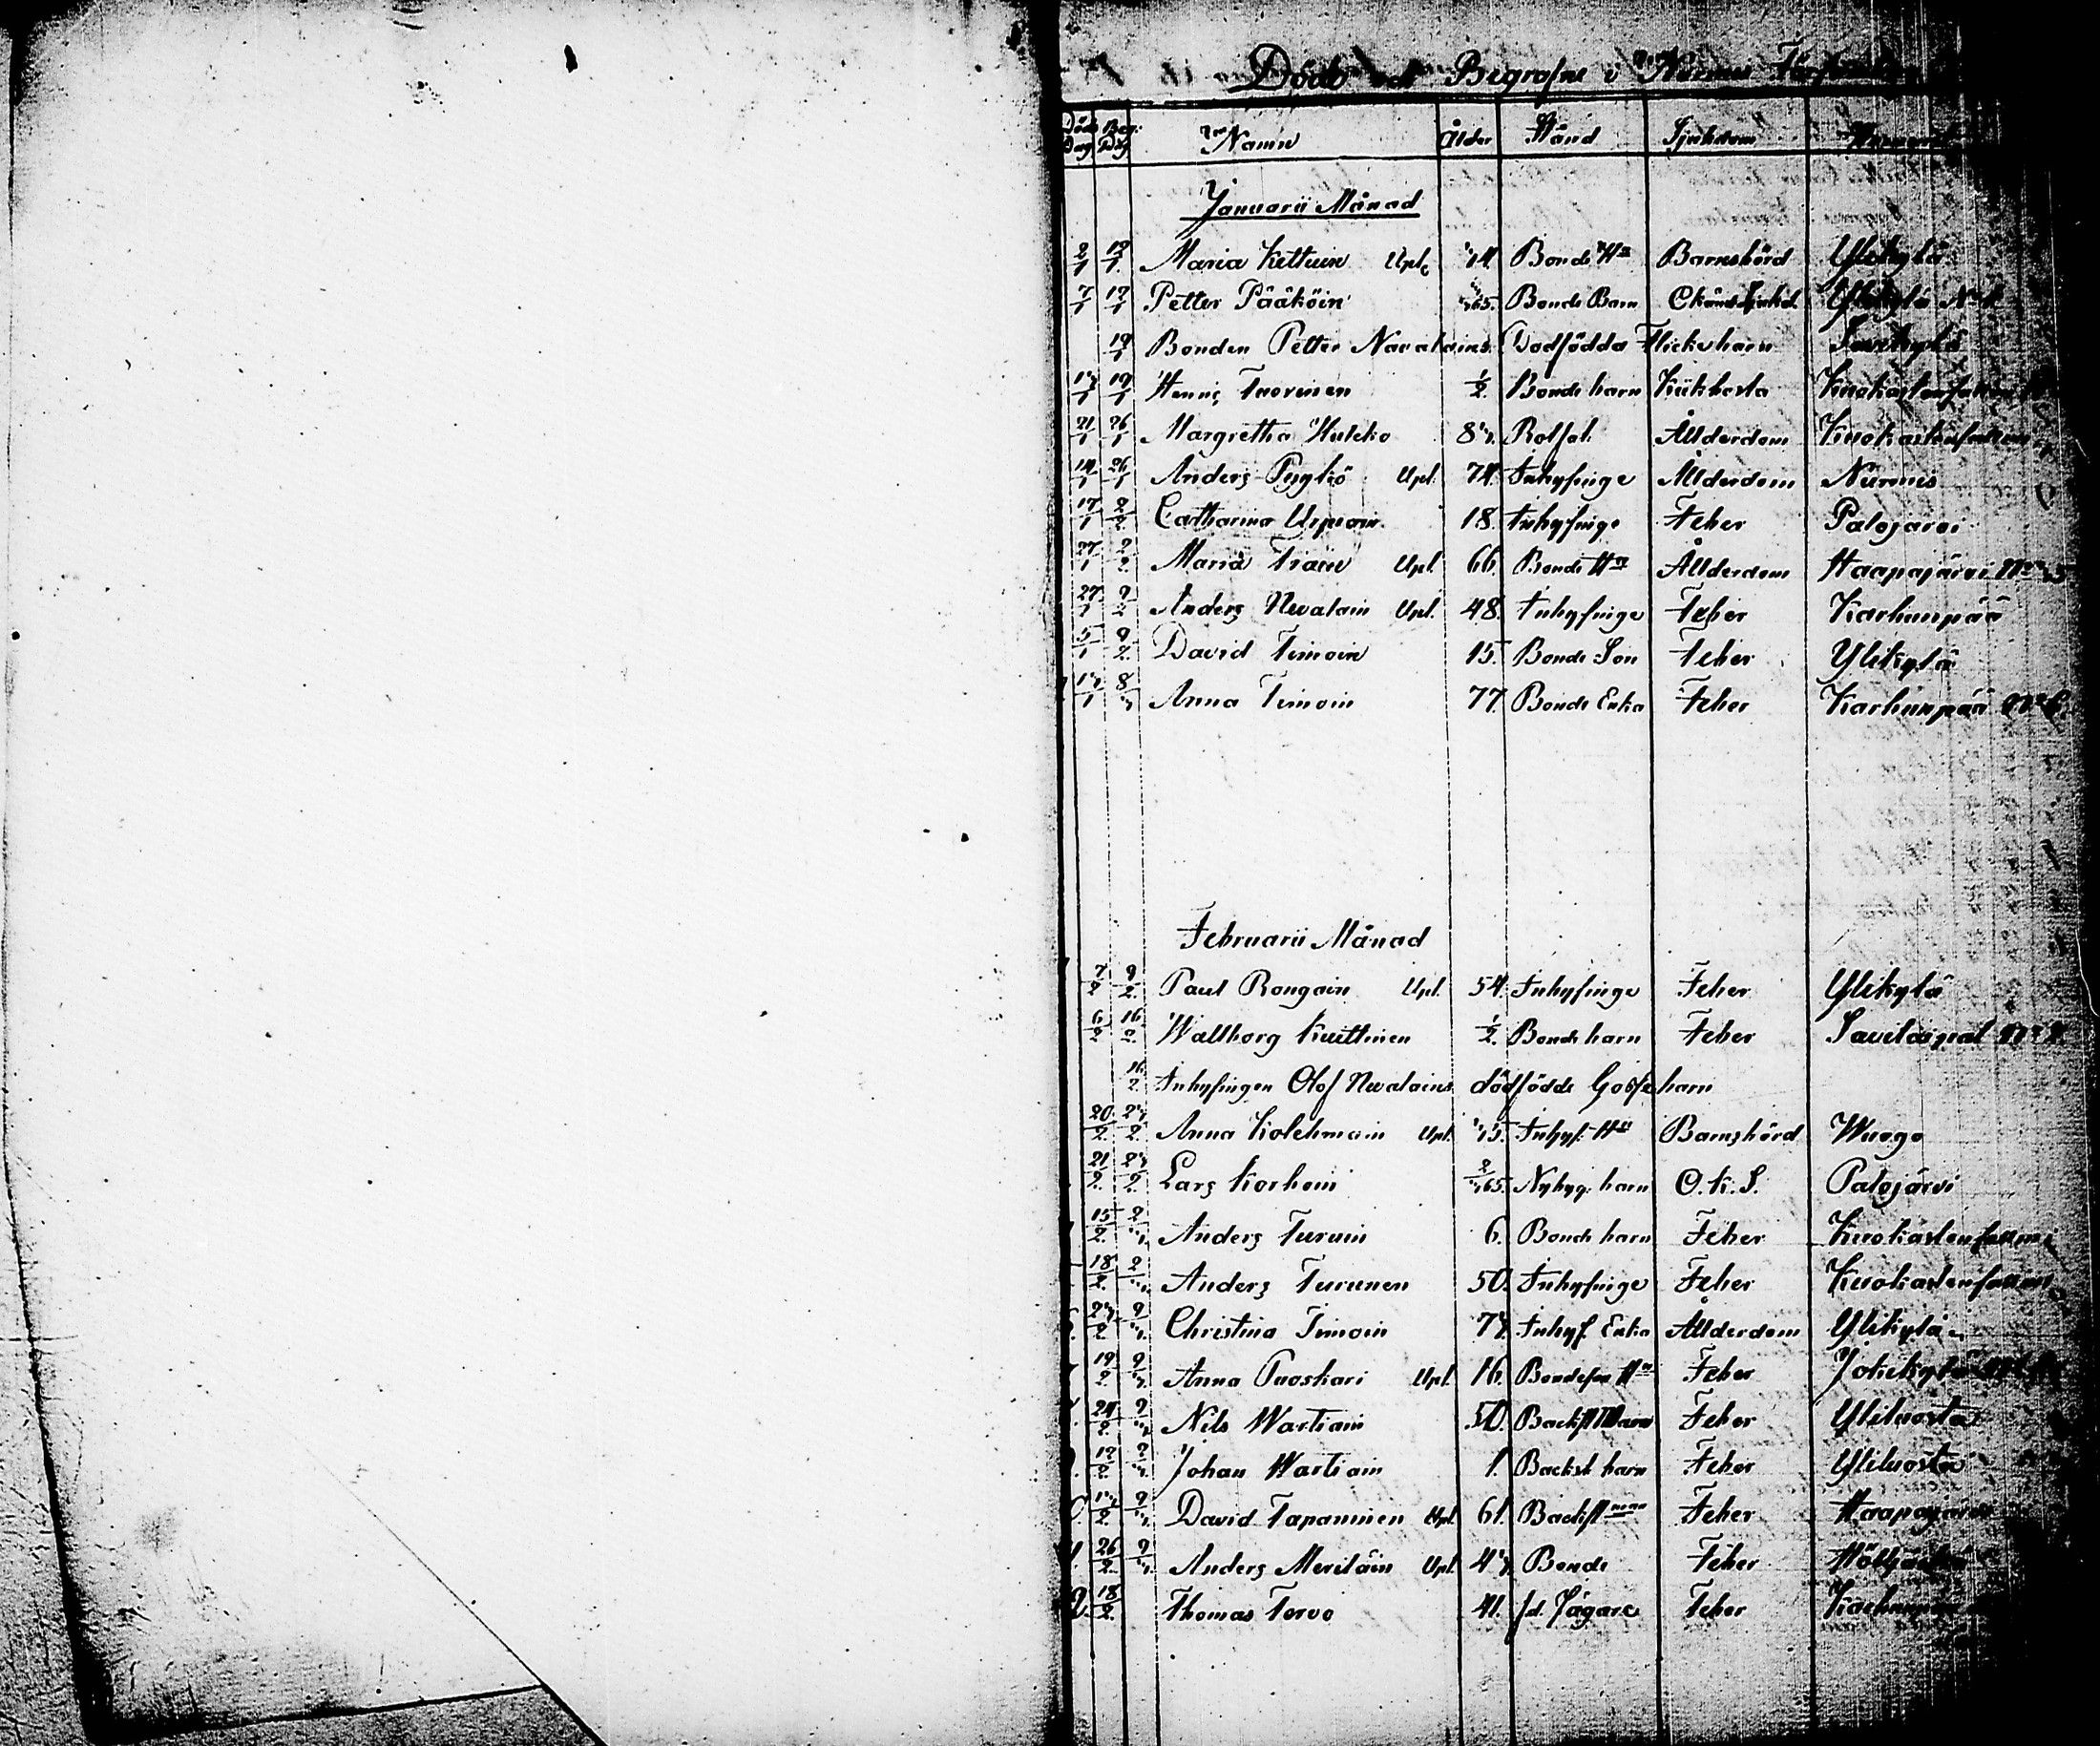 Döde och Begrafne i Nurmis
Död Dag Beg: Dag Namn Ålder Stånd Sjukdom
Januarii Månad
2/1 12/1 Maria Kettuin Upl. 34 Bonde Hu Barnsbörd Ylikylä
7/1 12/1 Petter Pääköin Bonde Barn Okänd Sjukd. Ylikylä
19/1 Bonden Petter Nevalains Dödfödda Flickebarn Savikylä
13/1 19/1 Henric Tuovinen 1/2 Bonde barn Kikhosta
21/1 26/1 Margretha Hulcko 83. Rotfat. Ållderdom
14/1 26/1 Anders Pyykö Upl. 74. Inhysinge Ållderdom Nurmis
17/1 2/2 Catharina Urpiain 18. Inhysinge Feber Palojärvi
27/1 2/2 Maria Tiain Upl. 66. Bonde Hu Ållderdom Haapajärvi No 35
27/1 9/2 Anders Nevalain Upl. 48. Inhysinge Feber Karhunpää
5/1 9/2 David Timoin 15. Bonde Son Feber Ylikylä
13/1 8/3 Anna Timoin 77. Bonde Enka Feber Karhunpää No 6.
Februarii Månad
7/2 9/2 Paul Rongain Upl. 54. Inhysinge Feber Ylikylä
6/2 16/2 Wallborg Kuittinen 1/2. Bonde barn Feber
16/2 Inhysingen Olof Nevalains dödfödde Gossebarn
20/2 23/2 Anna Kolehmain Upl. 35. Inhys. Hu Barnsbörd Wuogo
21/2 23/2 Lars Korhoin 2/365. Nybyg. barn O. K. S. Palojärvi
15/2 2/3 Anders Turuin 6. Bonde barn Feber
18/2 2/3 Anders Turunen 50. Inhysinge Feber
23/2 9/3 Christina Timoin 73. Inhys Enka Ållderdom Ylikylä
19/2 9/3 Anna Puoskari Upl. 16. Bondeson Hu Feber Jokikylä
24/2 9/3 Nils Wartiain 50. Backst Man Feber Yliluosta
12/2 9/3 Johan Wartiain 1. Backst barn Feber Yliluosta
13/2 9/3 David Tapaninen Upl. 61. Backst man Feber Haapajärvi
26/2 9/3 Anders Meriläin Upl. 43 Bonde Feber Höljäkkä
18/2. Thomas Torvo 41. fd. Jägare Feber Karhunpää